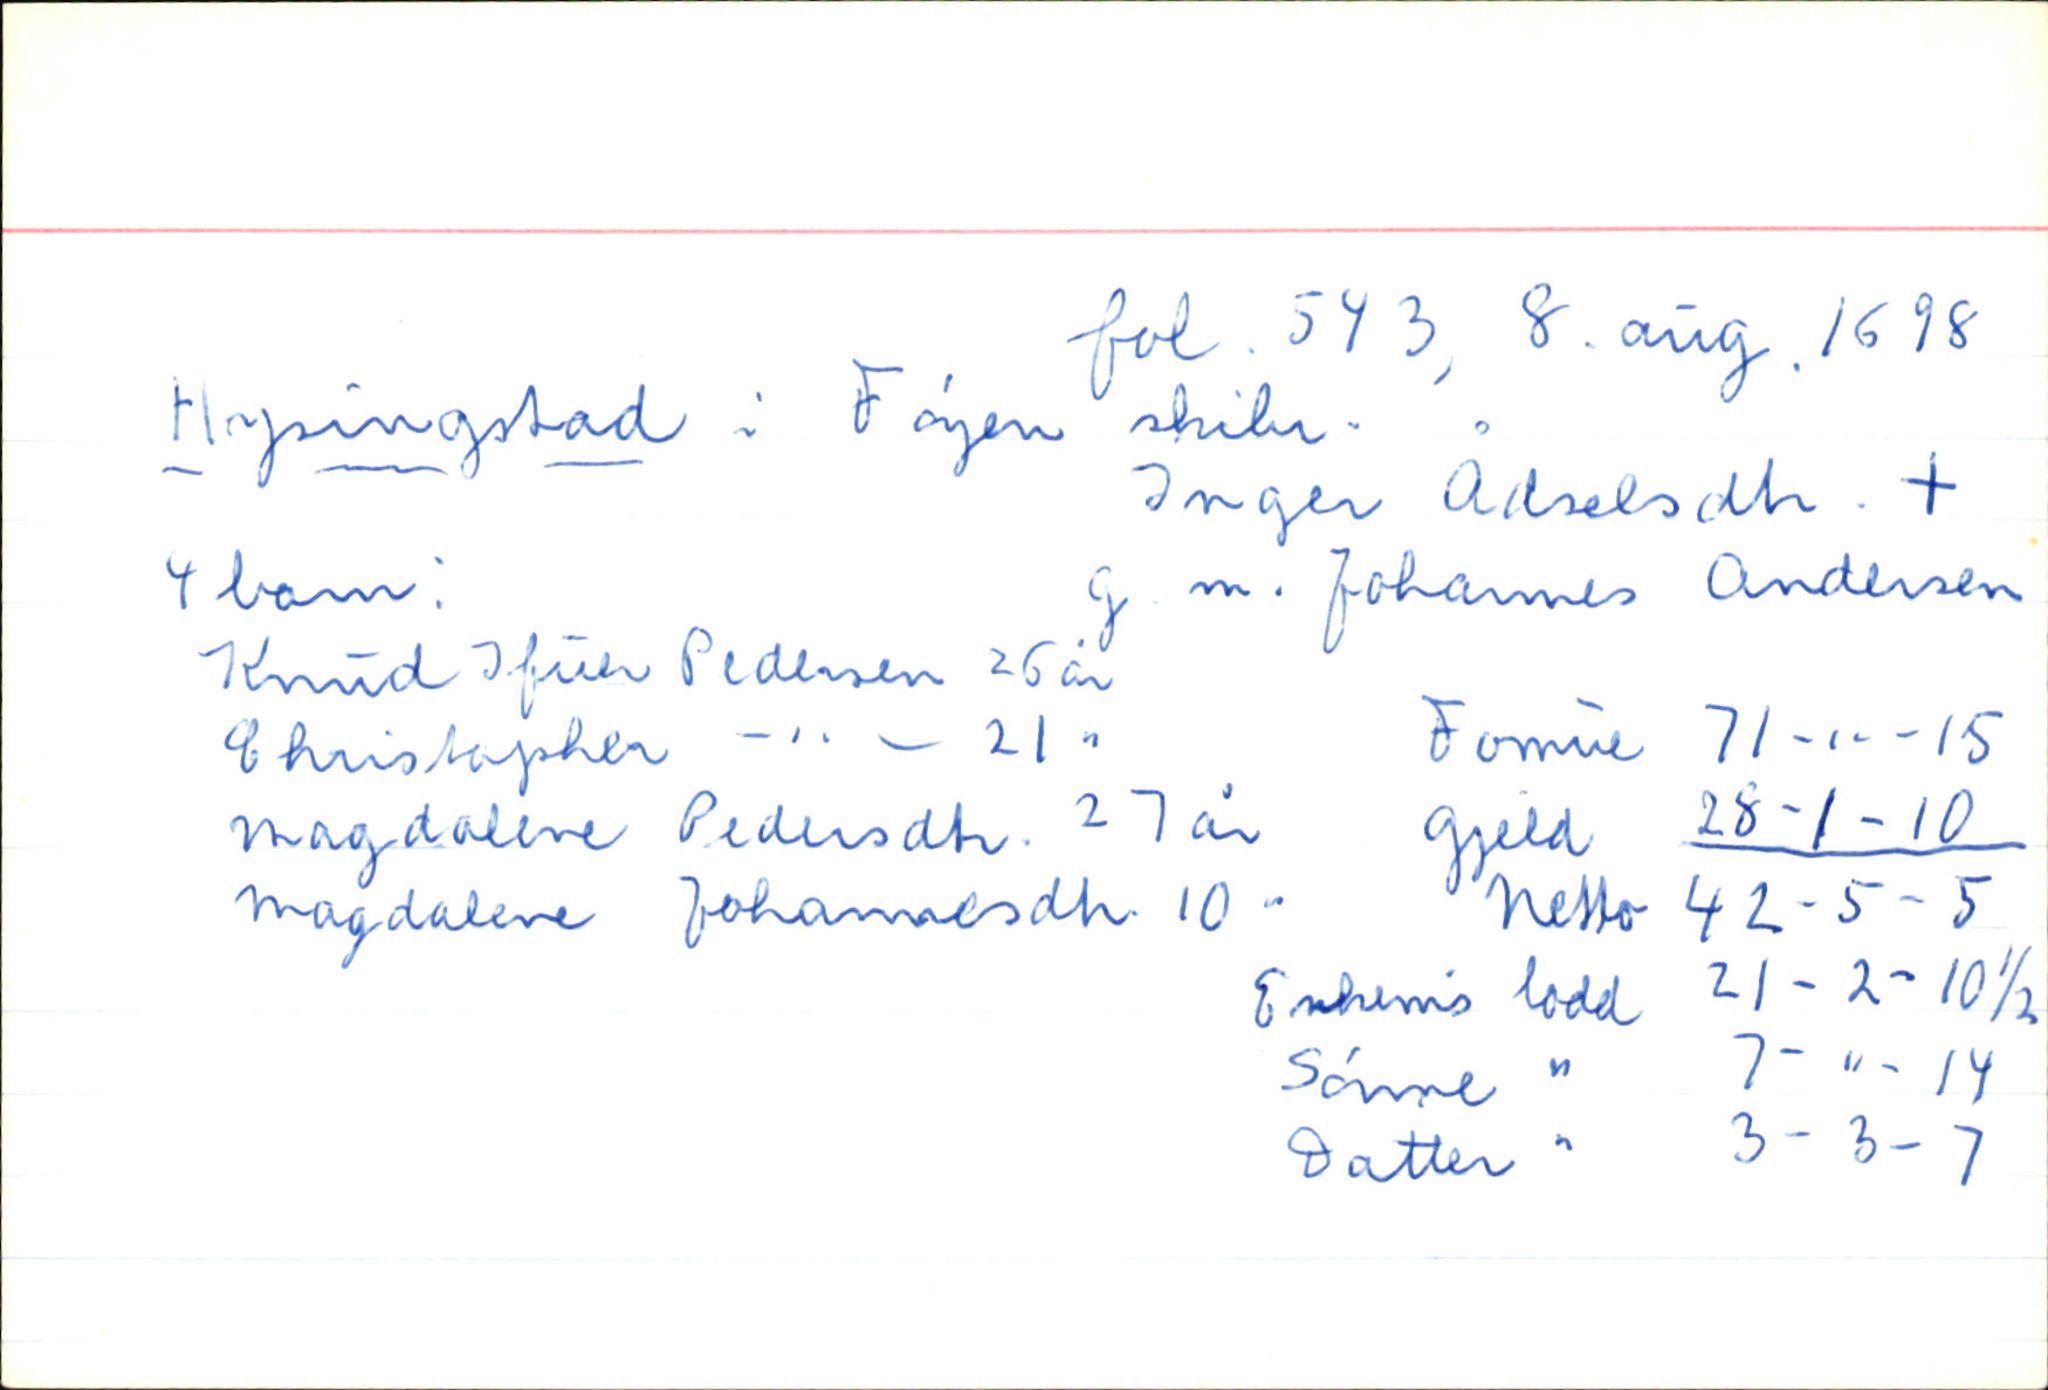 fol. 543, 8. aug. 1698
Hysingstad i Föyen skibr.
Inger Ådselsdtr. +
4 barn: g. m. Johannes Andersen
Knud Ifuer Pedersen 26 år
Christopher - " - 21 " Formue 71 - " - 15
Magdalene Pedersdtr. 27 år Gjeld 28 - 1 - 10
Magdalene Johannesdtr. 10 " Netto 42 - 5 - 5
Enkems lodd 21 - 2 - 10 1/2
Sönne " 7 - " - 14
Datter " 3 - 3 - 7